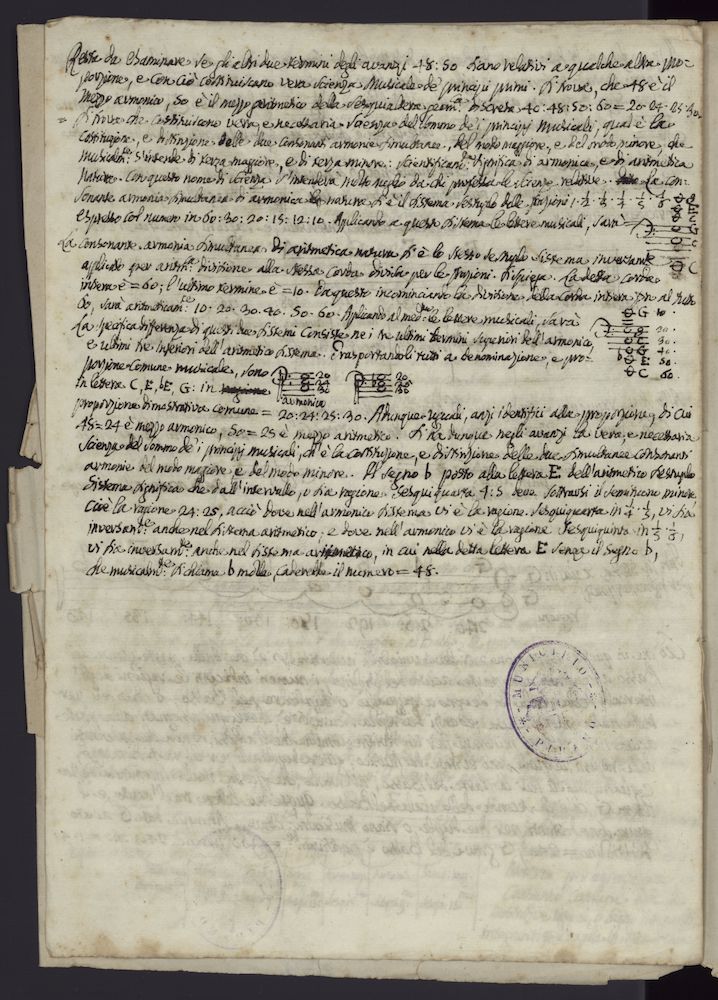 Resta da esaminare se gli altri due termini degli avanzi 48:50 siano relativi a qualche altra pro=
porzione, e con ciò costituiscano vera scienza Musicale de' principj primi. Si trova, che 48 è il
mezzo armonico, 50 è il mezzo aritmetico della Sesquialtera geom.ca discreta 40:48:50:60 = 20:24:25:30.
= Si trova che costituiscono vera, e necessaria scienza del sommo de' principj musicali, qual è la
costituzione, e distinzione delle due consonanti armonie simultanee, del modo maggiore, e del modo minore, che
musicalm.te s'intende di terza maggiore, e di terza minore: scientificam.te significa di armonica, e di aritmetica
natura. Con questo nome di scienza s'intenderà molto meglio da chi professa le scienze relative. La con=
sonante armonia simultanea di armonica natura si è il sistema sestuplo delle frazioni 1·1/2·1/3·1/4·1/5·1/6
espresso coi numeri in 60:30:20:15:12:10. Applicando a questo sistema le lettere musicali, sarà
G
E
C
G
C
C
La consonante armonia simultanea di aritmetica natura si è lo stesso sestuplo sistema inversam.te
applicato per aritm.ca divisione alla stessa corda divisa per le frazioni. Si spiega. La detta corda
intera è = 60; l'ultimo termine è = 10. Da questo incominciando la divisione della corda intera sino al tutto
60, sarà aritmeticam.te 10·20·30·40·50·60. Applicando al med.mo le lettere musicali, sarà
G 10.
G 20.
C 30.
G 40.
E 50.
C 60.
La specifica differenza di questi due sistemi consiste ne i tre ultimi termini superiori dell'armonico,
e ultimi tre inferiori dell'aritmetico sistema. Trasportandoli tutti a denominazione, e pro=
porzione comune musicale, sono
in lettera C, E, bE, G: in
armonica
proporzione dimostrativa comune = 20:24:25:30. Adunque uguali, anzi identifici alla proporzione, di cui
48 = 24 è mezzo armonico, 50 = 25 è mezzo aritmetico. Si ha dunque negli avanzi la vera, e necessaria
scienza del sommo de' principj musicali, ch'è la costituzione, e distinzione delle due simultanee consonanti
armonie del modo maggiore e del modo minore. Il segno b posto alla lettera E dell'aritmetico sestuplo
sistema significa che dall'intervallo, o sia ragione sesquiquarta 4:5 deve sottrarsi il semituono minore
cioè la ragione 24:25, acciò dove nell'armonico sistema vi è la ragione sesquiquarta in 1/4·1/5, vi sia
inversam.te anche nel sistema aritmetico; e dove nell'armonico vi è la ragione sesquiquinta in 1/5·1/6,
vi sia inversam.te anche nel sistema aritmetico, in cui nella detta lettera E senza il segno b,
che musicalm.te si chiama b molle, caderebbe il numero = 48.
MUNICIPIO
PIRANO